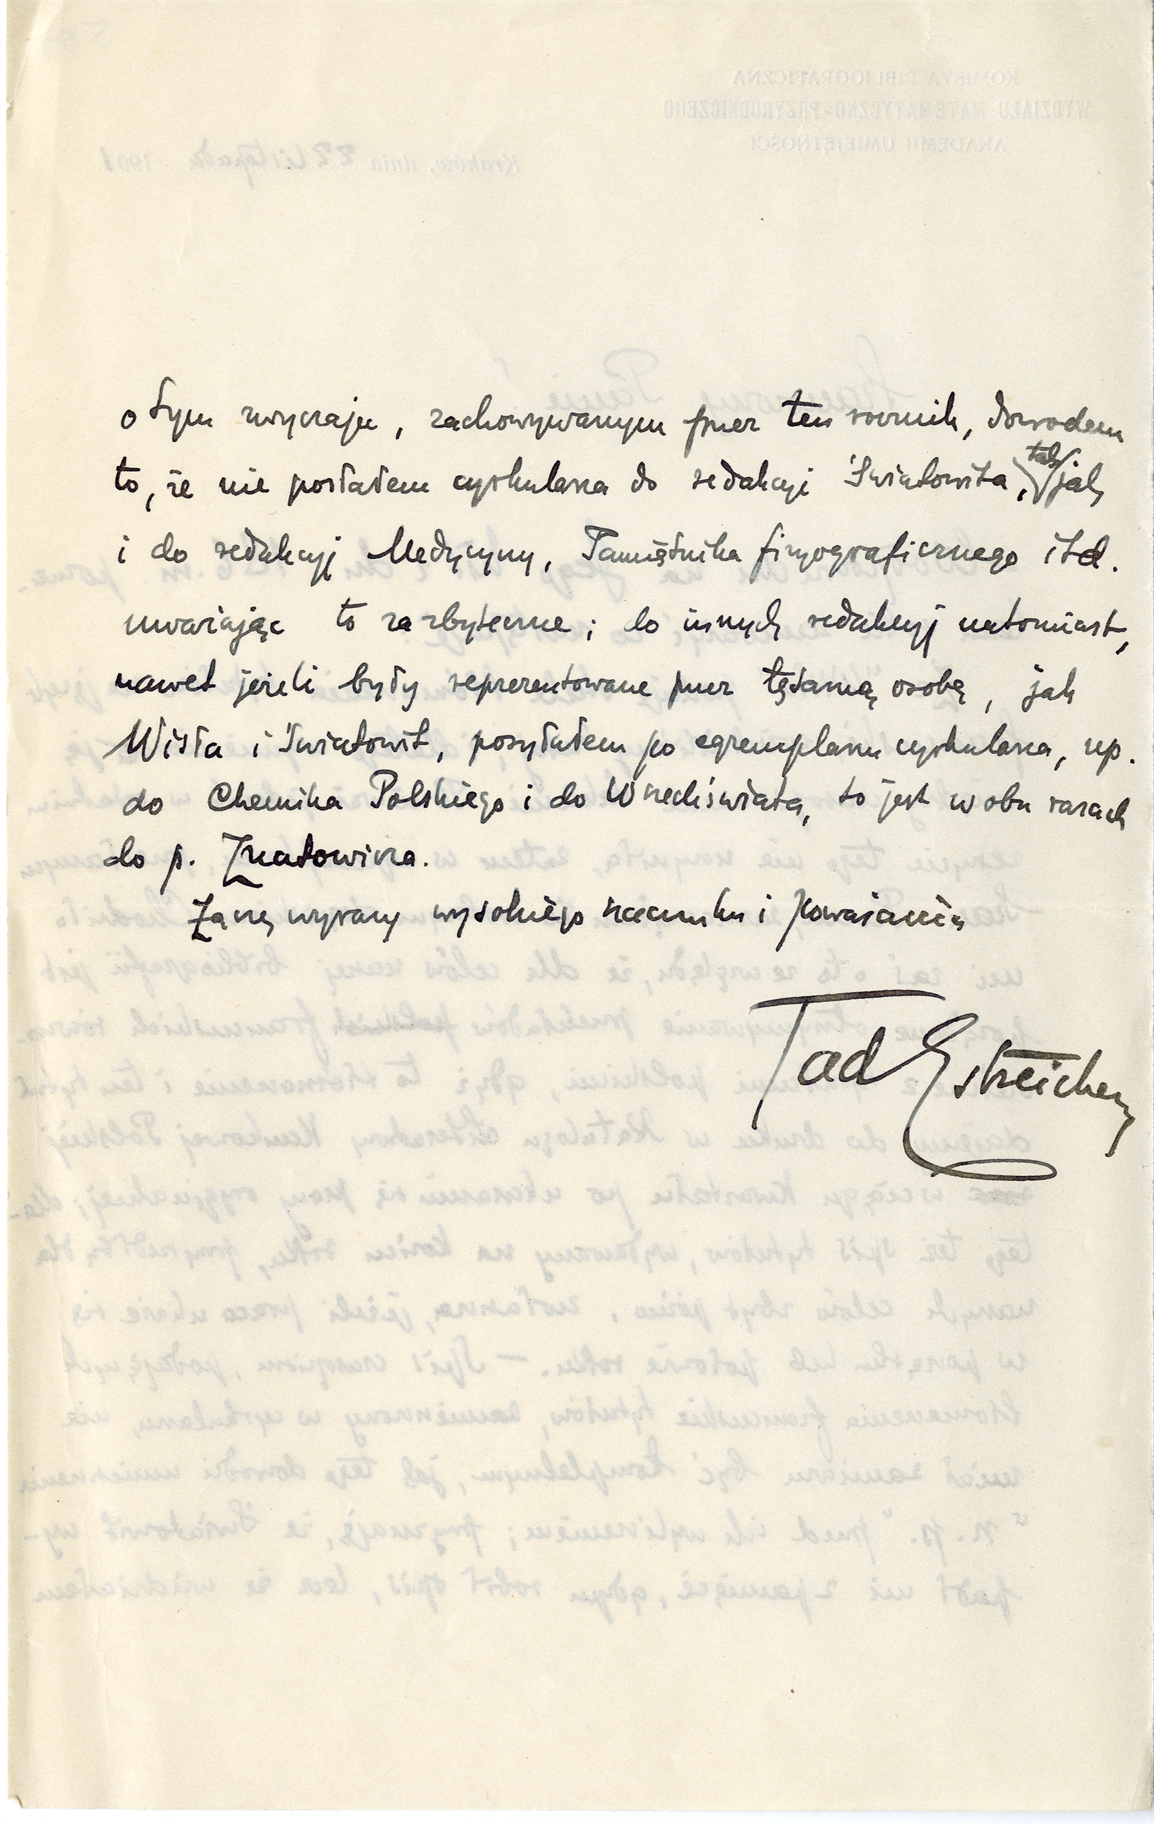 o tym zwyczaju, zachowywanym przez ten rocznik, dowodem
to, że nie posłałem cyrkularza do redakcyi Światowita, tak jak
i do redakcyj Medycyny, Pamiętnika fizyograficznego itd.
uważając to za zbyteczne; do innych redakcyj natomiast,
nawet jeżeli były reprezentowane przez tęsamą osobę, jak
Wisła i Światowit, posyłałem po egzemplarzu cyrkularza, np.
do Chemika Polskiego i do Wszechświata, to jest w obu razach
do p. Znatowicza.
Łączę wyrazy wysokiego szacunku i poważania
Tad Estreicher